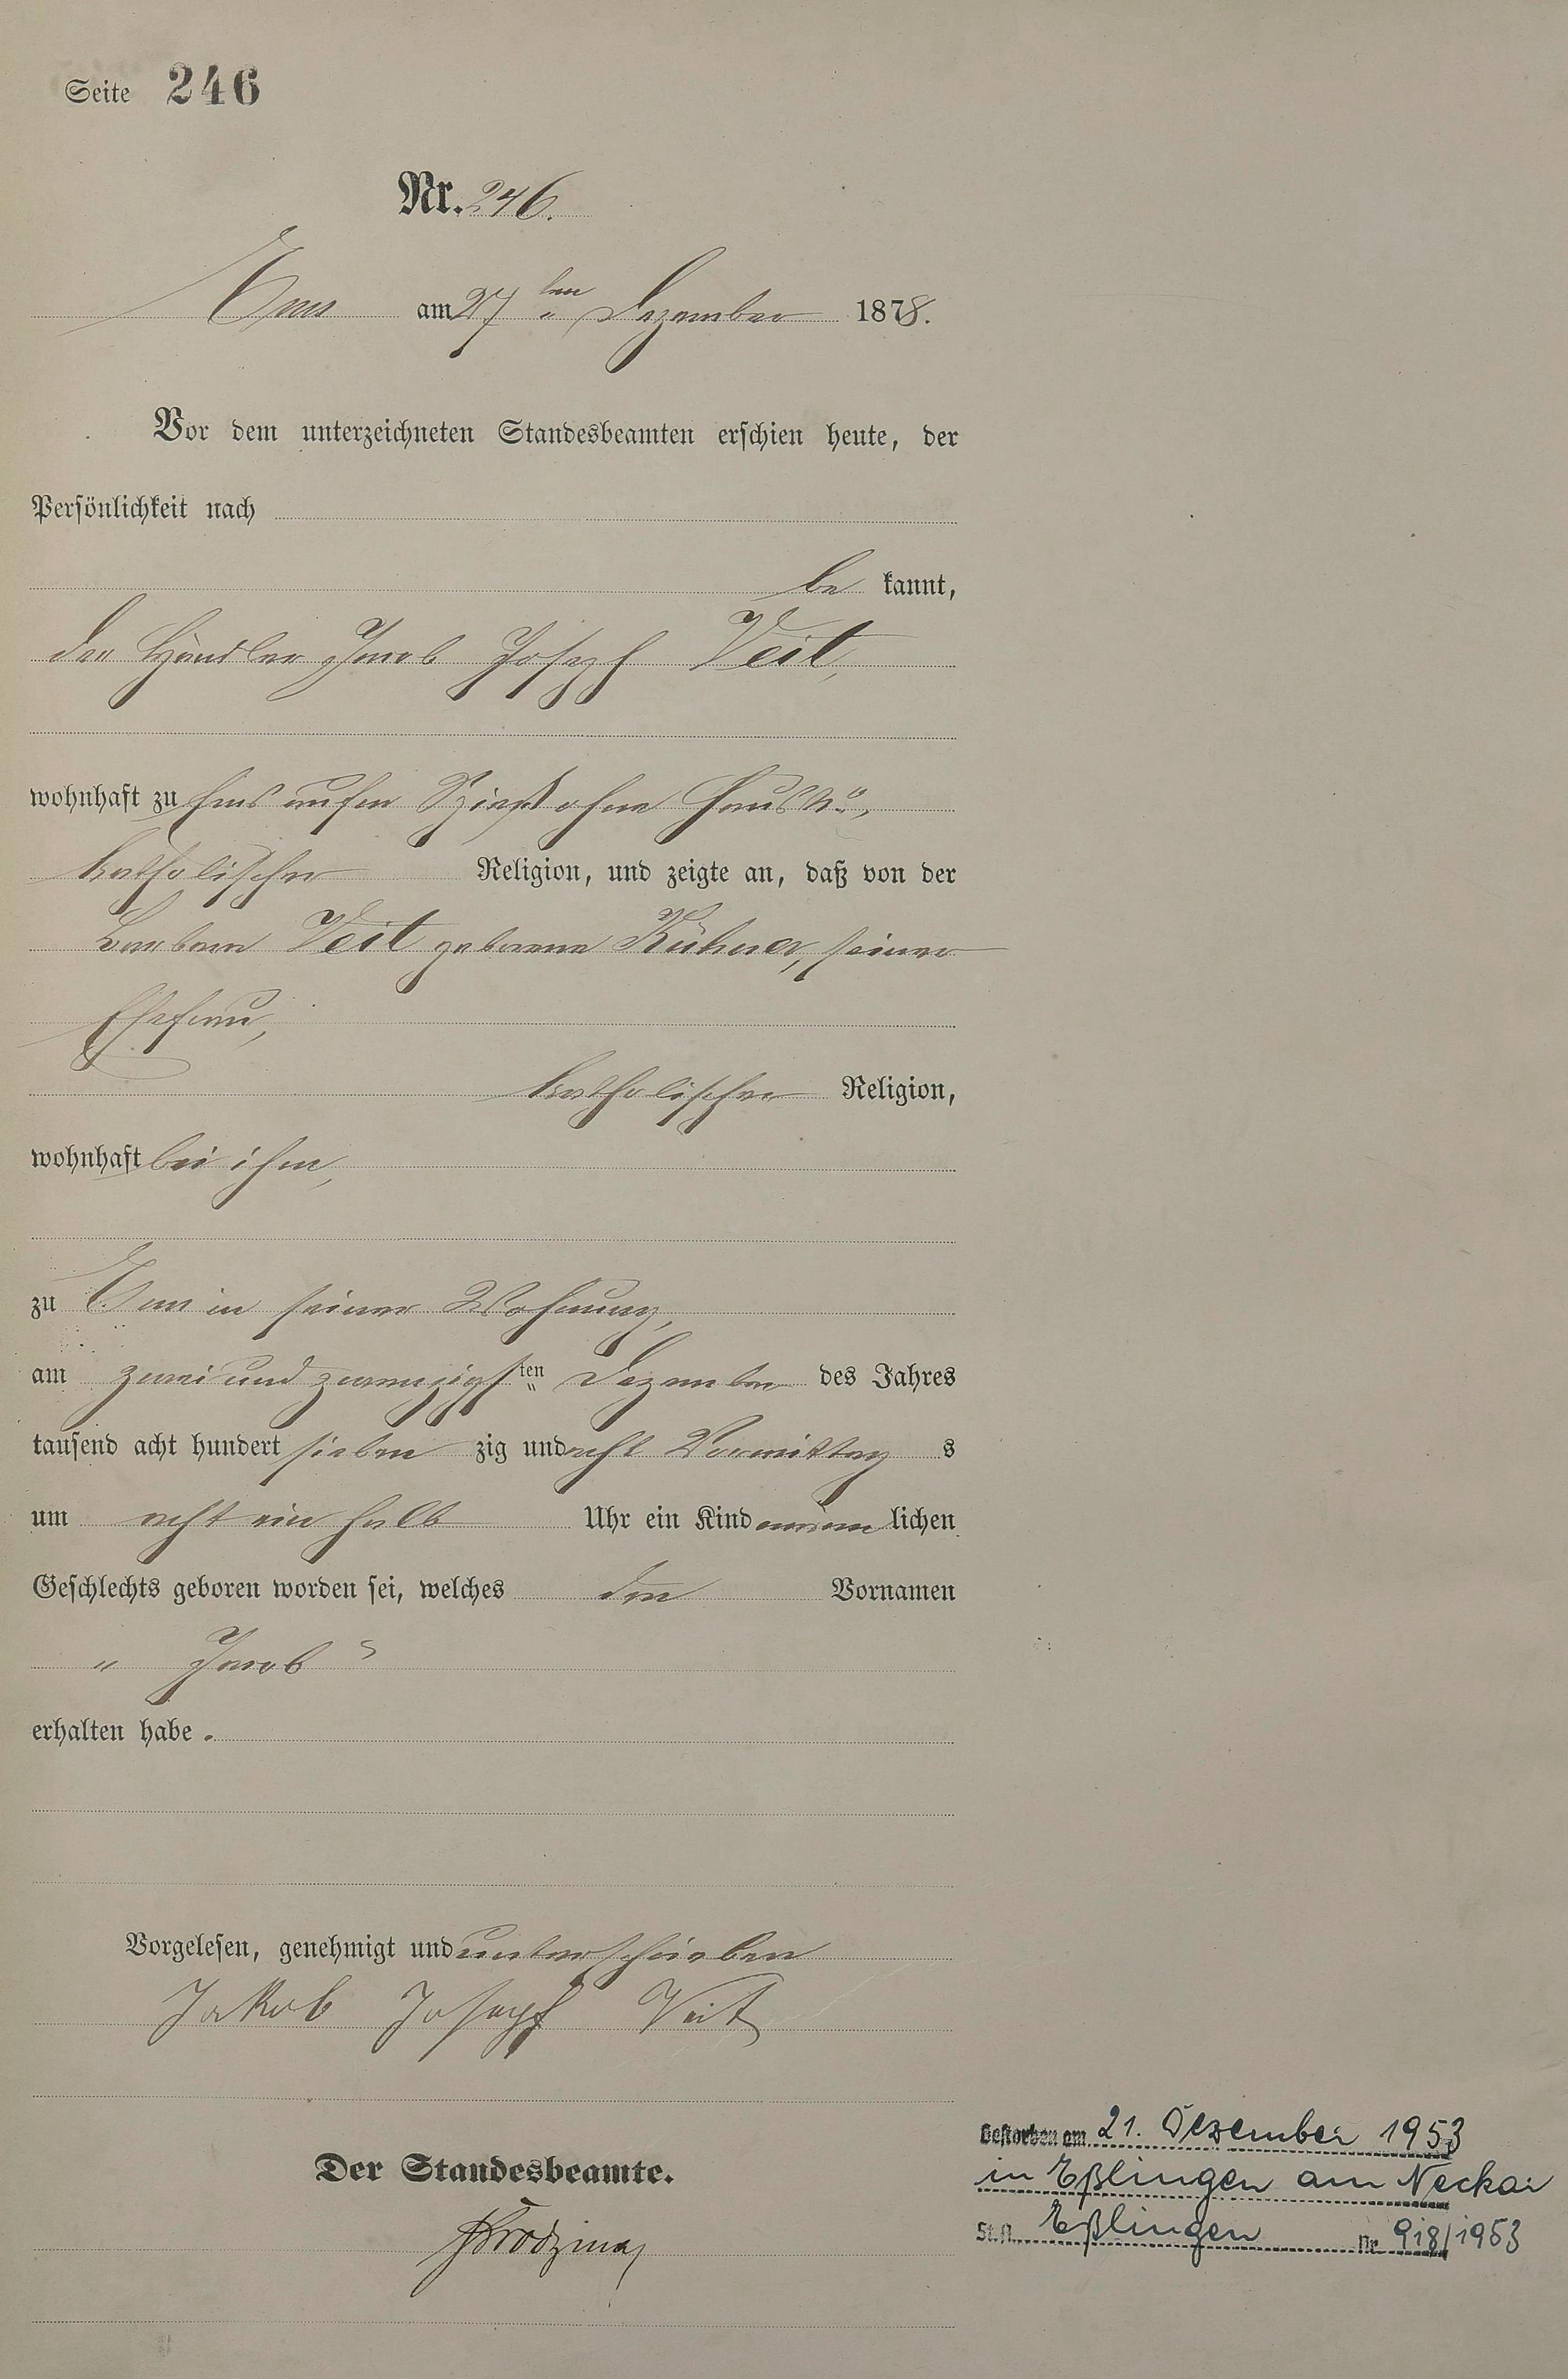 Seite 246
Nr. 246.
Ems am 27ten Dezember 1878.
Vor dem unterzeichneten Standesbeamten erschien heute, der
Persönlichkeit nach
be kannt,
der Händler Jacob Joseph Veit,
wohnhaft zu Ems aufm Spieß ohne Haus No.,
katholischer Religion, und zeigte an, daß von der
Barbara Veit geborene Kühner, seiner
Ehefrau,
katholischer Religion,
wohnhaft bei ihm,
zu Ems in seiner Wohnung,
am zwei und zwanzigsten Dezember des Jahres
tausend acht hundert sieben zig und acht Vormittag s
um acht ein halb Uhr ein Kind männ lichen
Geschlechts geboren worden sei, welches den Vornamen
„Jacob“
erhalten habe.
Vorgelesen, genehmigt und unterschrieben
Jakob Joseph Veit
Der Standesbeamte.
Gestorben am 21. Dezember 1953
in Eßlingen am Neckar
St.A. Eßlingen Nr. 918/1953